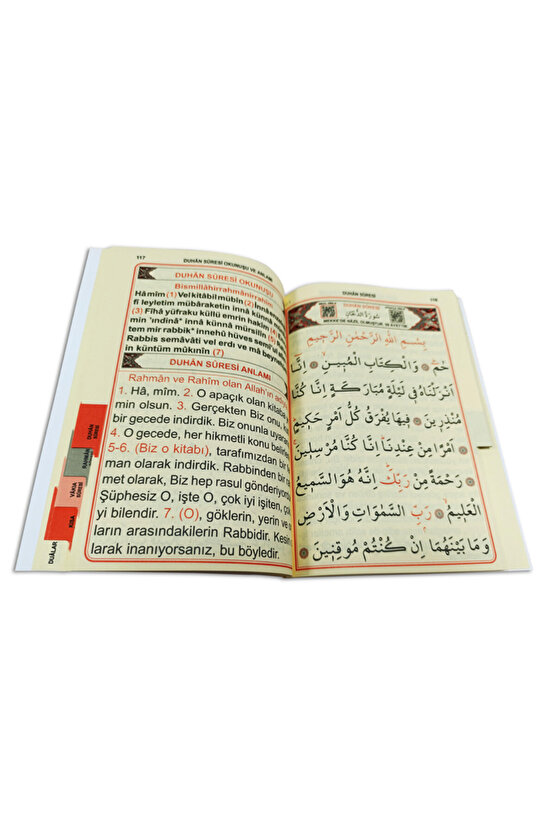 117
DUHÂN SÛRESİ OKUNUŞU VE ANLAMI
DUHÂN SÛRESİ OKUNUŞU
Bismillâhirrahmânirrahîm
Hâ mîm (1) Vel kitâbil mübîn (2) İnnâ enzelnâ
fî leyletim mübâraketin innâ künnâ
(3) Fîhâ yüfraku küllü emrin hakîm (4)
min 'ındinâ* innâ künnâ mürsilîn (5)
tem mir rabbik* innehû hüves semî'ul
Rabbis semâvâti vel erdı ve mâ beynehümâ
in küntüm mûkınîn (7)
DUHÂN SÛRESİ ANLAMI
Rahmân ve Rahîm olan Allah'ın adıyla
1. Hâ, mîm. 2. O apaçık olan kitaba
min olsun. 3. Gerçekten Biz onu,
bir gecede indirdik. Biz onunla
4. O gecede, her hikmetli konu
5-6. (Biz o kitabı), tarafımızdan bir
man olarak indirdik. Rabbinden bir
met olarak, Biz hep rasul gönderiyoruz
Şüphesiz O, işte O, çok iyi işiten, çok
iyi bilendir. 7. (O), göklerin, yerin ve
ların arasındakilerin Rabbidir.
larak inanıyorsanız, bu böyledir.
DUHÂN SÛRESİ
RAHMÂN
VÂKIA SÛRESİ
KISA
DUÂLAR
DUHÂN SÛRESİ
118
DUHÂN SÛRESİ
سُورَةُ الدُّخَانِ
MEKKE'DE NÂZİL OLMUŞTUR. 59 ÂYETTİR.
بِسْمِ اللّٰهِ الرَّحْمٰنِ الرَّحِيمِ
حٰمٓ وَالْكِتَابِ الْمُبِينِ اِنَّٓا
اَنْزَلْنَاهُ فِى لَيْلَةٍ مُبَارَكَةٍ اِنَّا كُنَّا
مُنْذِرِينَ فِيهَا يُفْرَقُ كُلُّ اَمْرٍ حَكِيمٍ
اَمْرًا مِنْ عِنْدِنَا اِنَّا كُنَّا مُرْسِلِينَ
رَحْمَةً مِنْ رَبِّكَ اِنَّهُ هُوَ السَّمِيعُ
الْعَلِيمُ رَبِّ السَّمٰوَاتِ وَالْاَرْضِ
وَمَا بَيْنَهُمَا اِنْ كُنْتُمْ مُوقِنِينَ